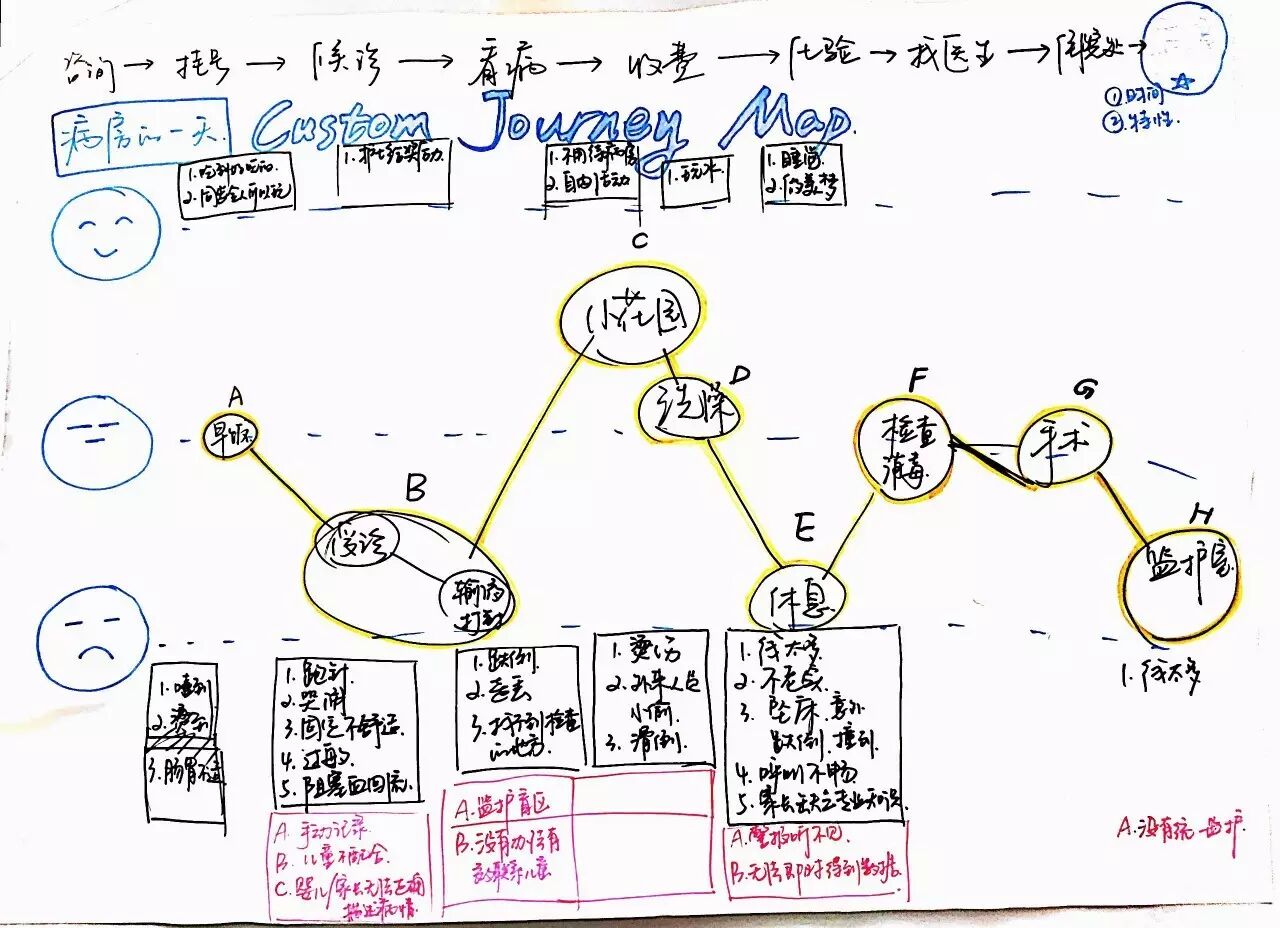 咨询→挂号→候诊→看病→收费→化验→找医生→住院处→
①时间
②特性.
病房的一天.
Custom Journey Map.
1.吃到好吃的
1.护士给奖励
1.不用待病房
2.自由活动
1.玩水
1.睡觉
2.做美梦
C
小花园
A
早饭
D
洗澡
F
检查
消毒
G
手术
B
侯诊
输液
打针
E
休息
H
监护室
1.噎到
2.
3.肠胃不适
1.跑针
2.哭闹
3.固定不舒适
4.过敏
5.阻塞血回流
1.跌倒.
2.走丢
3.找不到检查
的地方.
1.烫伤
2.外来人员
小偷.
3.滑倒.
1.线太多
2.不老实.
3.坠床.意外
跌倒.撞到.
4.呼叫不畅
5.家长缺乏专业知识
1.线太多
A.手动记录.
B.儿童不配合.
C.婴儿/家长无法正确
描述病情.
A.监护盲区
B.没有办法有
效联系儿童
A.警报听不见.
B.无法即时得到警报
A.没有统一监护.